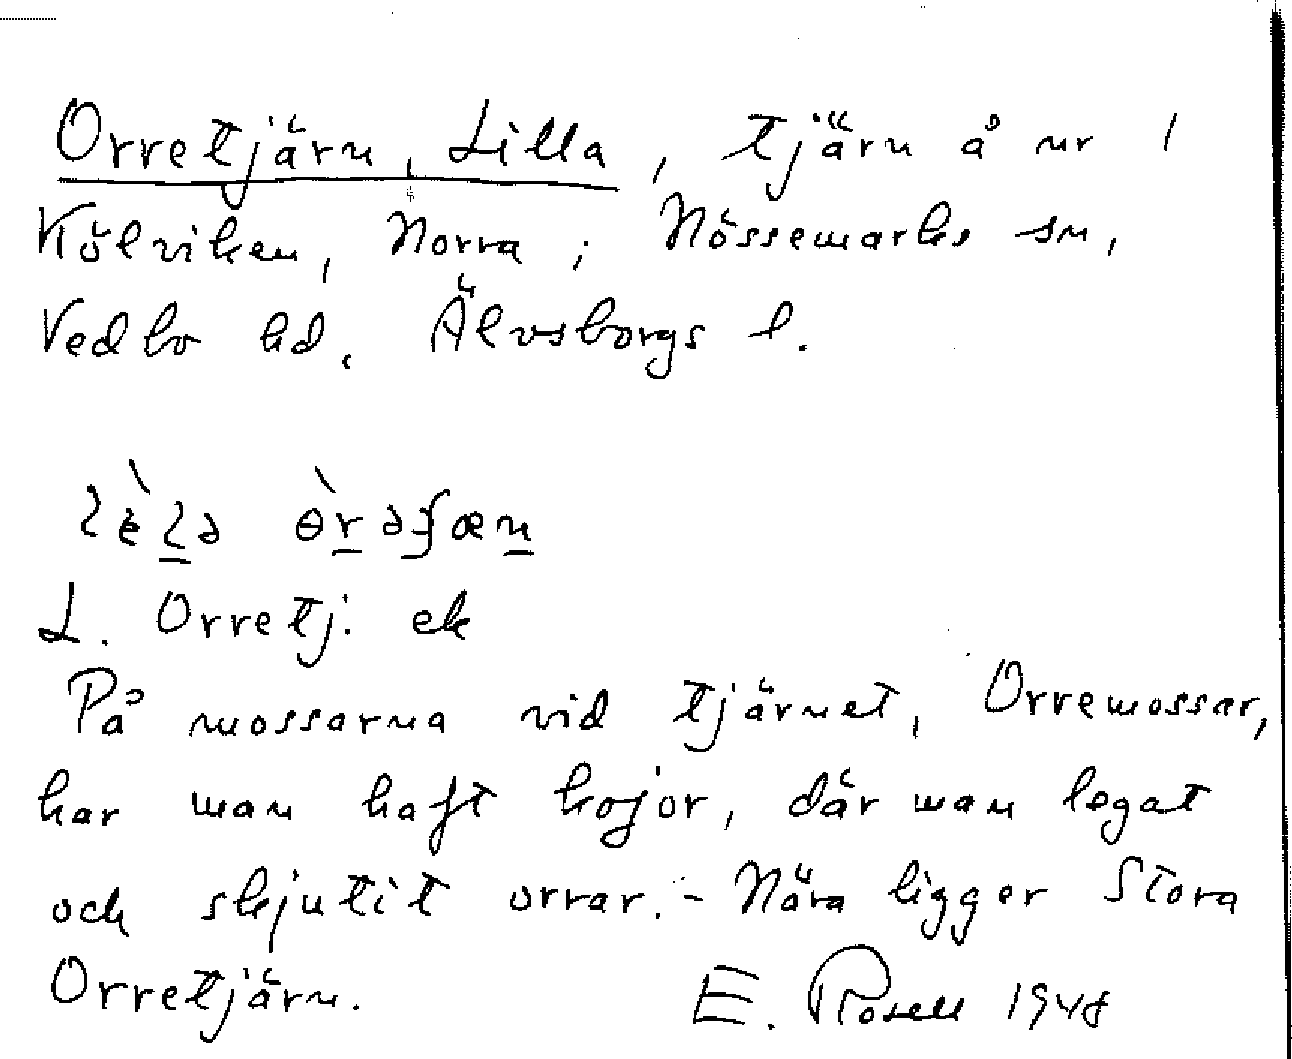 Orretjärn, Lilla, tjärn å nr 1
Kölviken, Norra; Nössemarks sn,
Vedbo hd, Älvsborgs l.
L. Orretj: ek
På mossarna vid tjärnet, Orremossar,
har man haft kojor, där man legat
och skjutit orrar. - Nära ligger Stora
Orretjärn. E. Rosell 1948